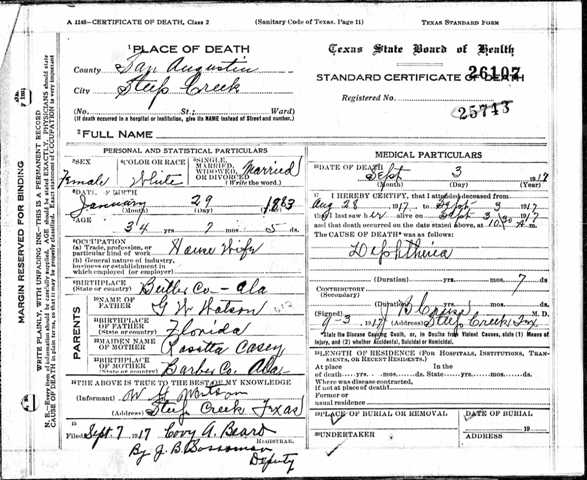 A 1148—CERTIFICATE OF DEATH, Class 2 (Sanitary Code of Texas, Page 11) TEXAS STANDARD FORM
MARGIN RESERVED FOR BINDING
WRITE PLAINLY, WITH UNFADING INK—THIS IS A PERMANENT RECORD
1PLACE OF DEATH
County San Augustin
City Steep Creek
(No. St.; Ward)
(If death occurred in a hospital or institution, give its NAME instead of Street and number.)
2FULL NAME
Texas State Board of Health
STANDARD CERTIFICATE OF DEATH
26107
Registered No.
25743
PERSONAL AND STATISTICAL PARTICULARS
SEX
Female
COLOR OR RACE
White
SINGLE, MARRIED, WIDOWED, OR DIVORCED Married
(Write the word.)
DATE OF BIRTH
January 29 1883
(Month) (Day) (Year)
AGE
34 yrs. 7 mos. 5 ds.
OCCUPATION
(a) Trade, profession, or particular kind of work House Wife
(b) General nature of industry, business or establishment in which employed (or employer)
BIRTHPLACE
(State or country) Butler Co - Ala
PARENTS
NAME OF FATHER G W Watson
BIRTHPLACE OF FATHER
(State or country) Florida
MAIDEN NAME OF MOTHER Rositta Casey
BIRTHPLACE OF MOTHER
(State or country) Barber Co. Ala
THE ABOVE IS TRUE TO THE BEST OF MY KNOWLEDGE
(Informant) W
(Address) Steep Creek Texas
Filed Sept. 7 1917 Covy A. Beard
REGISTRAR.
By J. B. Deputy
MEDICAL PARTICULARS
DATE OF DEATH
Sept 3 1917
(Month) (Day) (Year)
I HEREBY CERTIFY, that I attended deceased from
Aug 28 1917 to Sept 3 1917
that I last saw her alive on Sept 3 1917
and that death occurred on the date stated above, at 10:30 A m.
The CAUSE OF DEATH was as follows:
Diphtheria
(Duration) yrs. mos. 7 ds.
CONTRIBUTORY
(Secondary)
(Duration) yrs. mos. ds.
(Signed) M. D.
9-3 1917 (Address) Steep Creek Tex
*State the Disease Causing Death, or, in Deaths from Violent Causes, state (1) Means of Injury, and (2) whether Accidental, Suicidal or Homicidal.
LENGTH OF RESIDENCE (FOR HOSPITALS, INSTITUTIONS, TRANSIENTS, OR RECENT RESIDENTS.)
At place In the
of death yrs. mos. ds. State yrs. mos. ds.
Where was disease contracted,
if not at place of death?
Former or
usual residence
PLACE OF BURIAL OR REMOVAL DATE OF BURIAL
19
UNDERTAKER ADDRESS